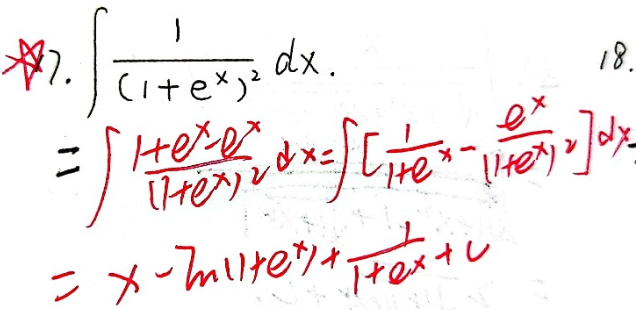 ☆17. ∫ 1/(1+e^x)² dx. 18.
= ∫ (1+e^x-e^x)/(1+e^x)² dx = ∫ [1/(1+e^x) - e^x/(1+e^x)²] dx
= x - ln(1+e^x) + 1/(1+e^x) + C